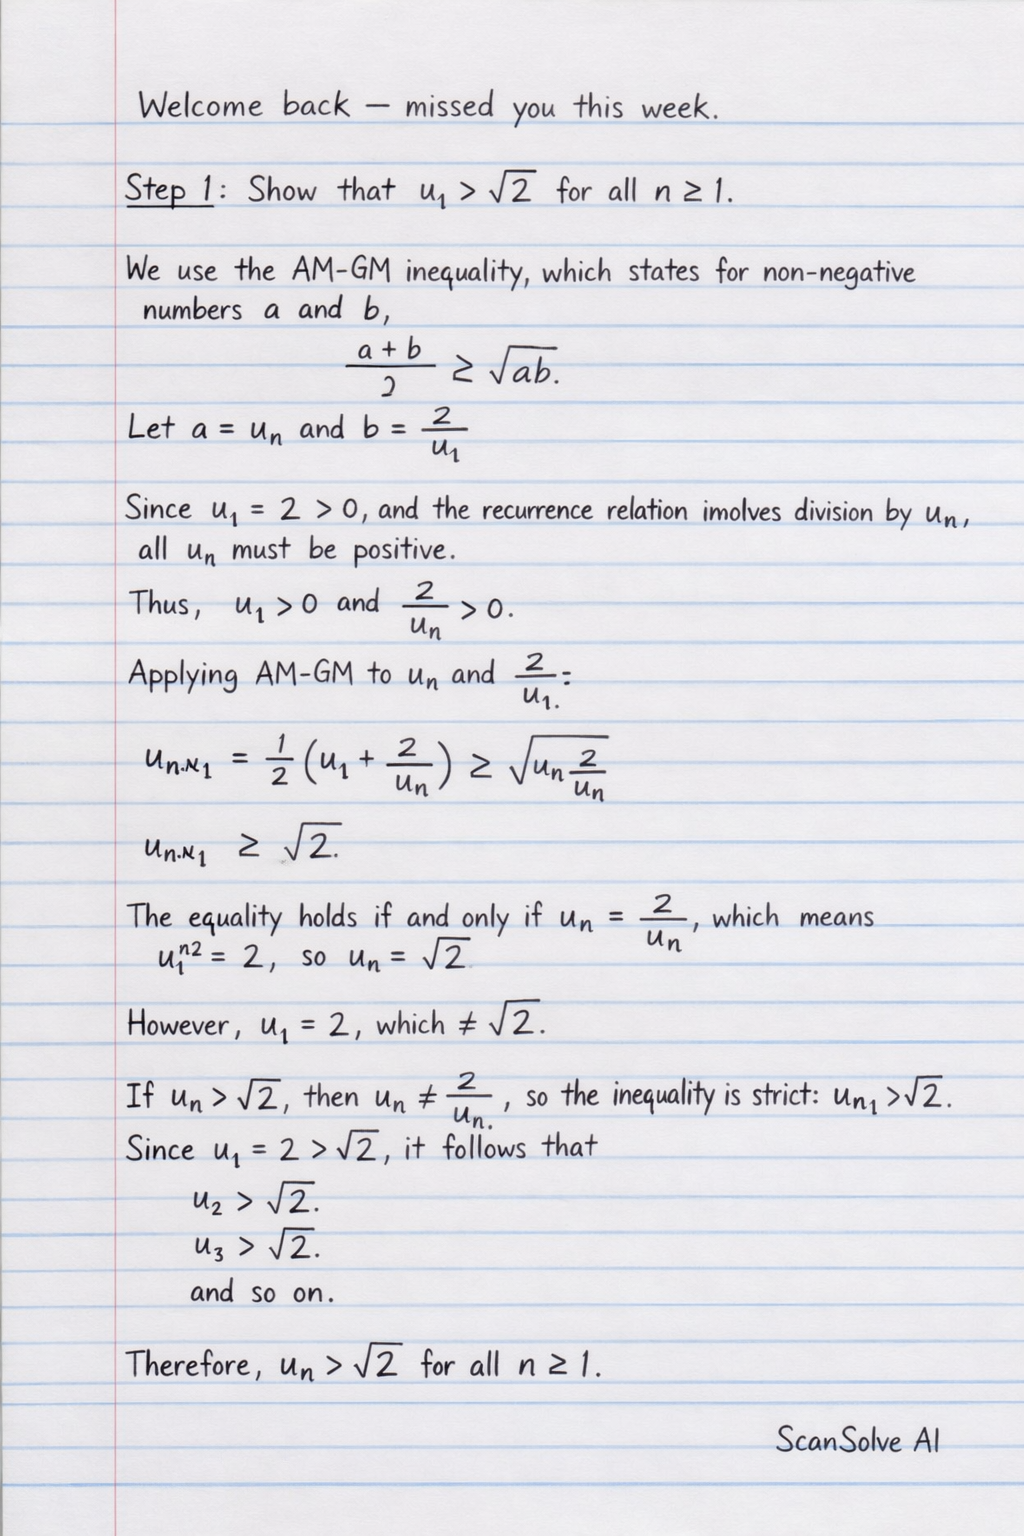 Welcome back — missed you this week.
Step 1: Show that u₁ > √2 for all n ≥ 1.
We use the AM-GM inequality, which states for non-negative
numbers a and b,
(a + b)/2 ≥ √ab.
Let a = uₙ and b = 2/u₁
Since u₁ = 2 > 0, and the recurrence relation imolves division by uₙ,
all uₙ must be positive.
Thus, u₁ > 0 and 2/uₙ > 0.
Applying AM-GM to uₙ and 2/u₁.:
uₙ.ɴ₁ = 1/2 (u₁ + 2/uₙ) ≥ √(uₙ 2/uₙ)
uₙ.ɴ₁ ≥ √2.
The equality holds if and only if uₙ = 2/uₙ, which means
u₁ⁿ² = 2, so uₙ = √2
However, u₁ = 2, which ≠ √2.
If uₙ > √2, then uₙ ≠ 2/uₙ., so the inequality is strict: uₙ₁ > √2.
Since u₁ = 2 > √2, it follows that
u₂ > √2.
u₃ > √2.
and so on.
Therefore, uₙ > √2 for all n ≥ 1.
ScanSolve AI